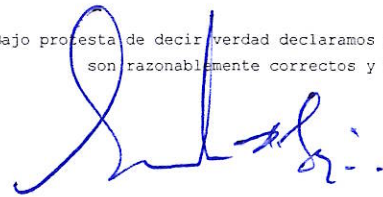 Bajo protesta de decir verdad declaramos
son razonablemente correctos y